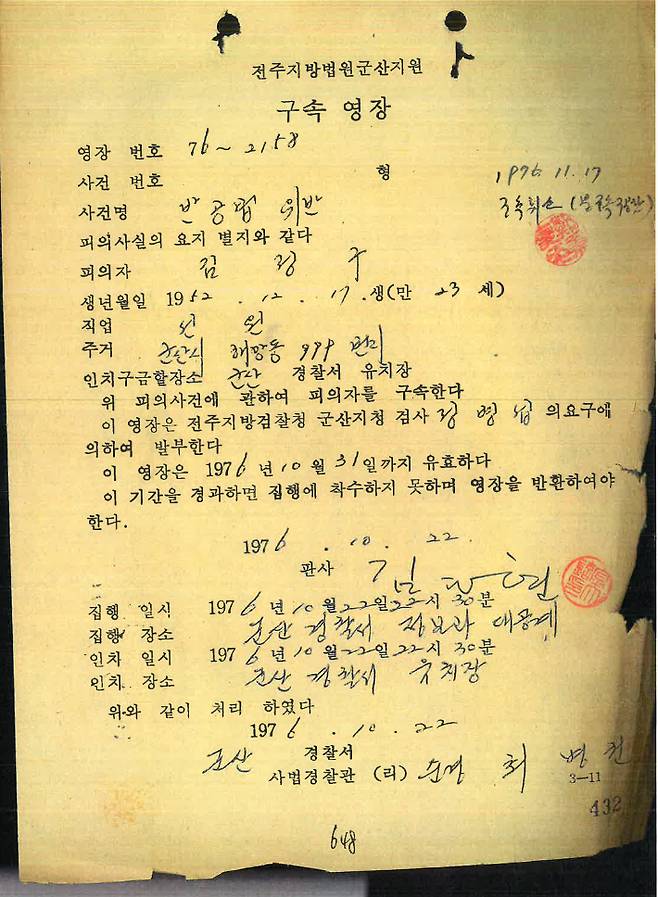 전주지방법원군산지원
구속 영장
영장 번호 76~2158
사건 번호 형
1976. 11. 17
사건명 반공법 위반
구속취소 (불구속
피의사실의 요지 별지와 같다
피의자 김 정
생년월일 1952 . 12 . 17 . 생(만 23 세)
직업 선 원
주거 군산시 해망동 999 번지
인치구금할장소 군산 경찰서 유치장
위 피의사건에 관하여 피의자를 구속한다
이 영장은 전주지방검찰청 군산지청 검사 정 병 섭 의요구에
의하여 발부한다
이 영장은 1976 년 10 월 31 일까지 유효하다
이 기간을 경과하면 집행에 착수하지 못하며 영장을 반환하여야
한다.
1976 . 10 . 22
판사 김
집행 일시 1976 년 10 월 22 일 22 시 30 분
집행 장소 군산 경찰서 정보과 대공계
인차 일시 1976 년 10 월 22 일 22 시 30 분
인치 장소 군산 경찰서 유치장
위와 같이 처리 하였다
1976 . 10 . 22
군산 경찰서
사법경찰관 (리) 순경 최 병
3-11
432
648